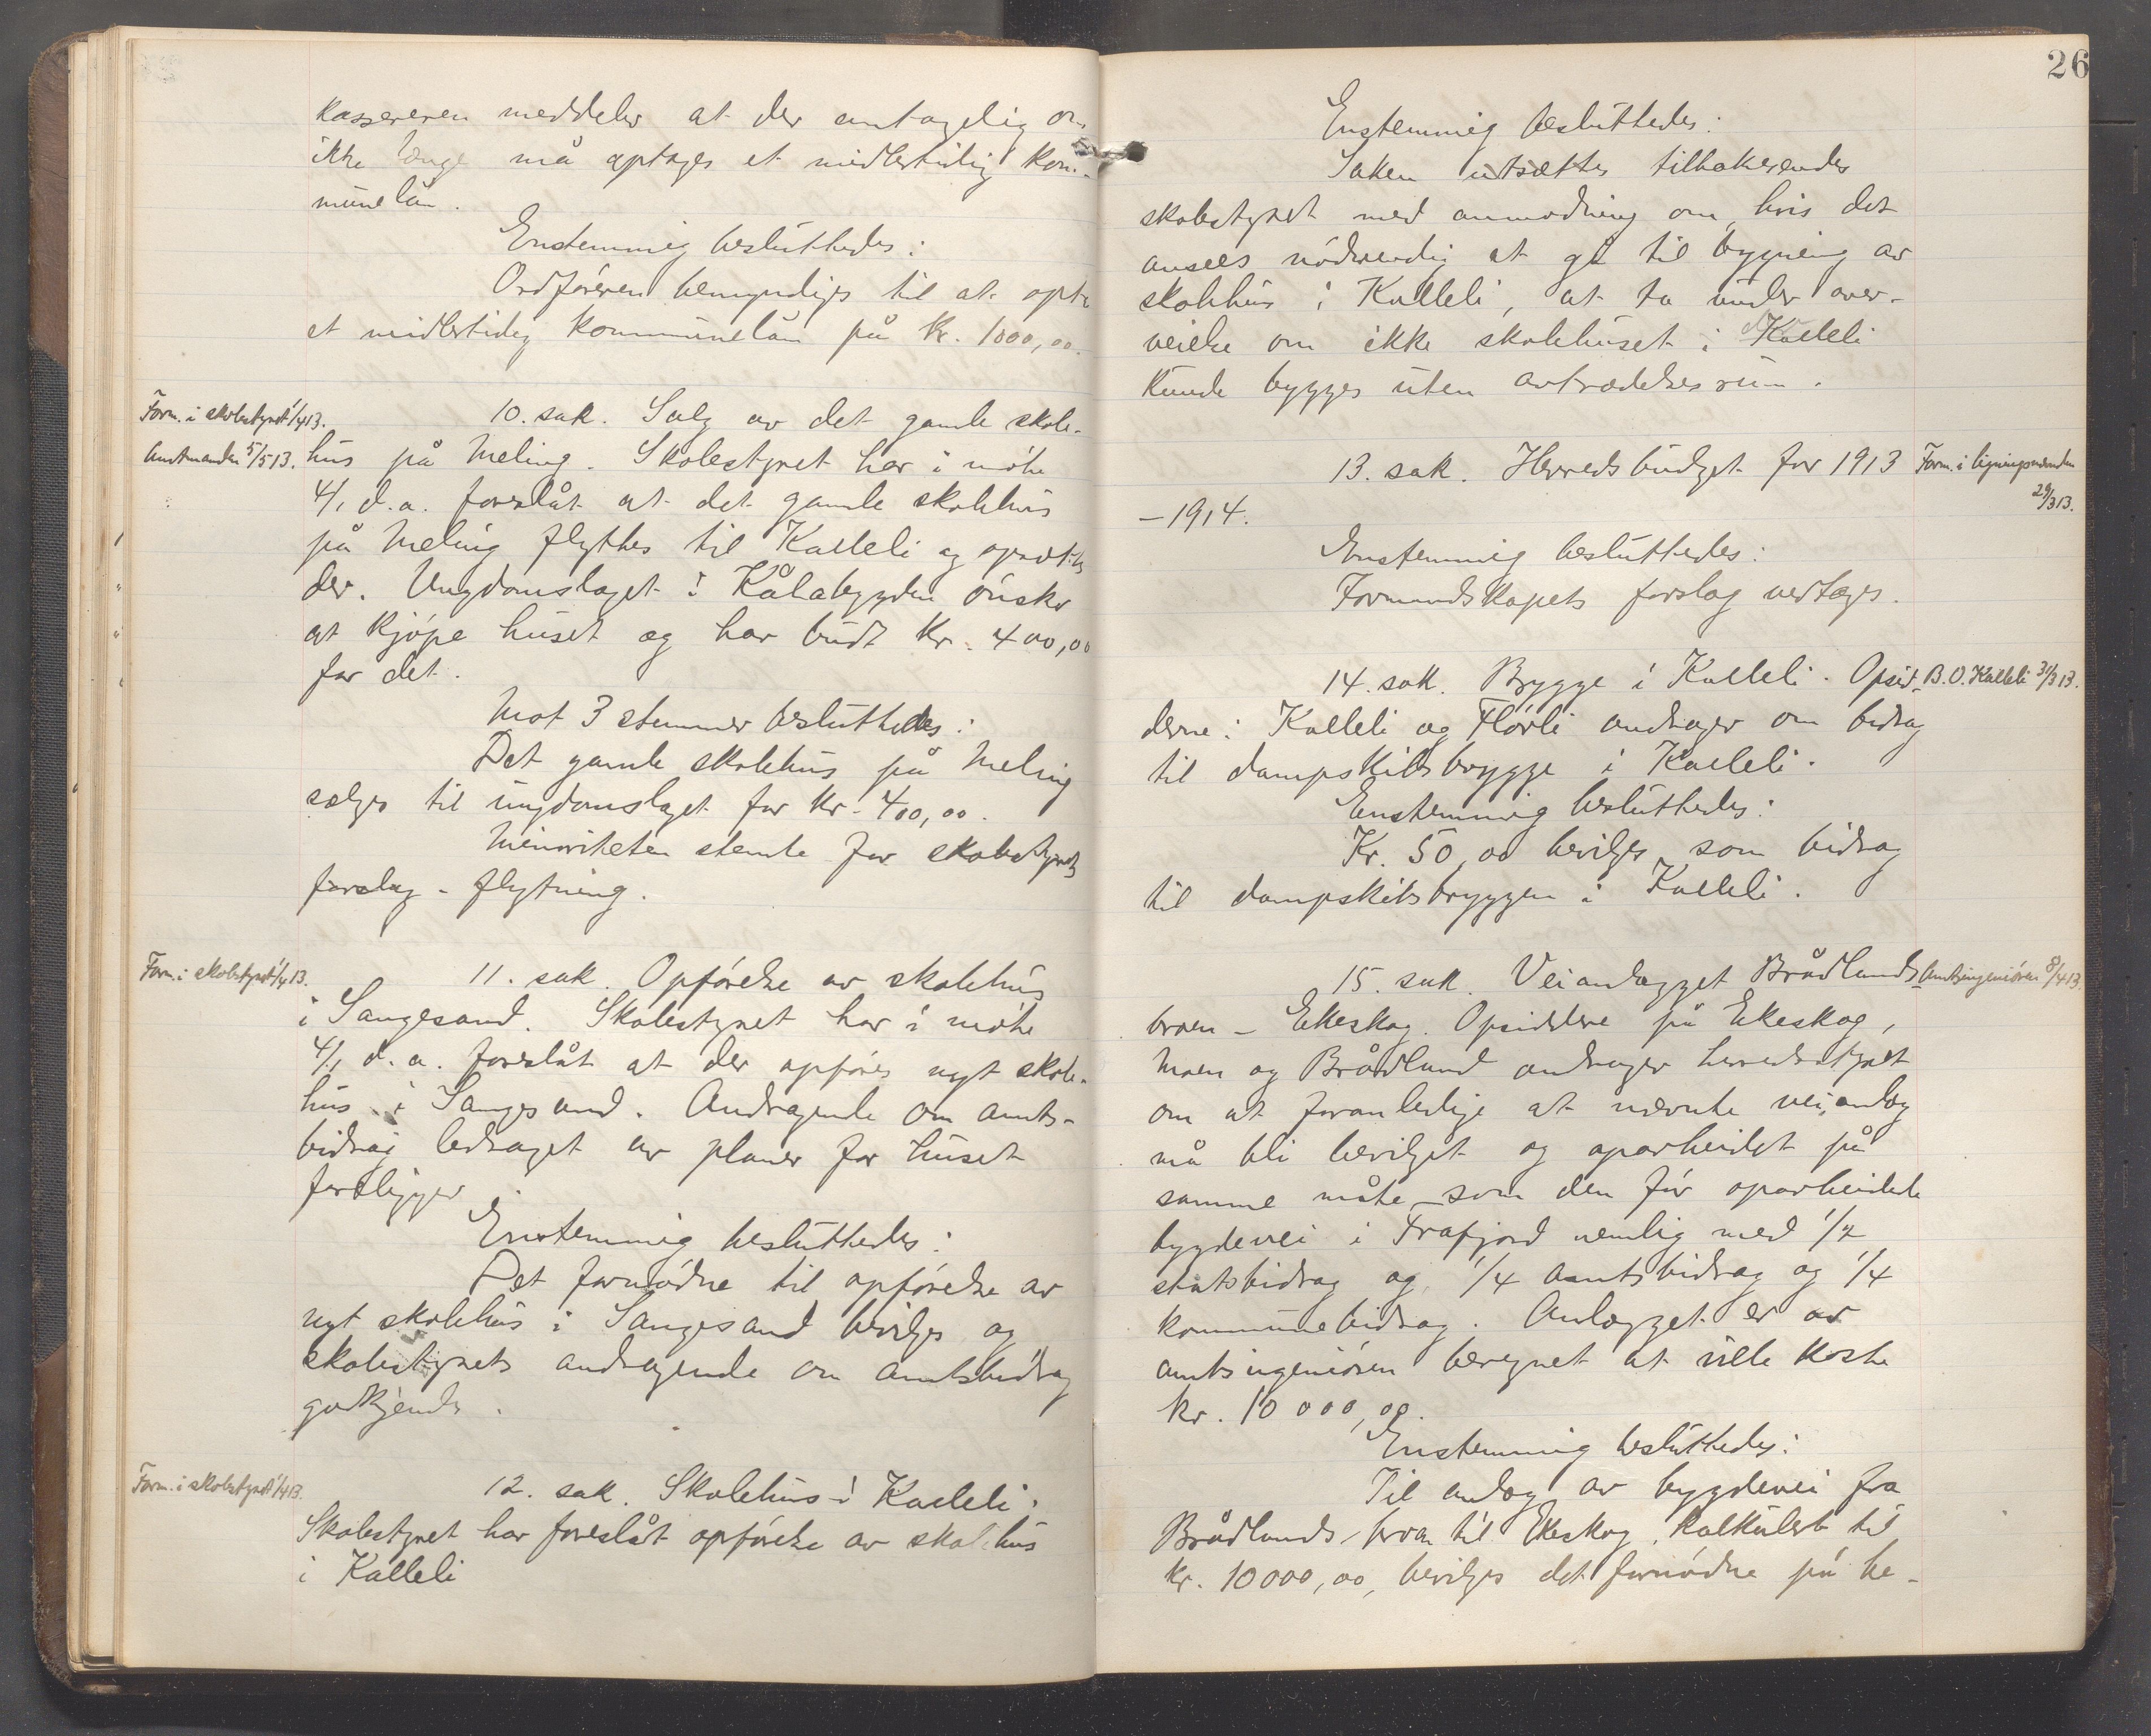 kassereren meddeler at der antagelig om
ikke længe må optages et midlertidig kom-
munelån.
Enstemmig besluttedes:
Ordføreren bemyndiges til at opta
et midlertidig kommunelån på kr. 1000,00.
Form. i skolestyret 1/4 13.
Amtmanden 5/5 13.
10. sak. Salg av det gamle skole-
hus på Meling. Skolestyret har i møte
4/1 d.a. foreslåt at det gamle skolehus
på Meling flyttes til Kalleli og opsættes
der. Ungdomslaget i Kålabygden ønsker
at kjøpe huset og har budt kr. 400,00
for det.
Mot 3 stemmer besluttedes:
Det gamle skolehus på Meling
sælges til ungdomslaget for kr. 400,00.
Minoriteten stemte for skolestyrets
forslag - flytning.
Form. i skolestyret 1/4 13.
11. sak. Opførelse av skolehus
i Sangesand. Skolestyret har i møte
4/1 d.a. foreslåt at der opføres nyt skole-
hus i Sangesand. Andragende om amts-
bidrag ledsaget av planer for huset
foreligger.
Enstemmig besluttedes:
Det fornødne til opførelse av
nyt skolehus i Sangesand bevilges og
skolestyrets andragende om amtsbidrag
godkjendes.
Form. i skolestyret 1/4 13.
12. sak. Skolehus i Kalleli.
Skolestyret har foreslåt opførelse av skolehus
i Kalleli
26
Enstemmig besluttedes:
Saken utsættes tilbakesendes
skolestyret med anmodning om, hvis det
ansees nødvendig at gå til bygning av
skolehus i Kalleli, at ta under over-
veielse om ikke skolehuset i Kalleli
kunde bygges uten avtrædelsesrum.
13. sak. Herredsbudget for 1913
Form. i ligningsnemnden
29/3 13.
- 1914.
Enstemmig besluttedes:
Formandskapets forslag vedtages.
14. sak. Brygge i Kalleli. Opsid-
B. O. Kalleli 31/3 13.
derne i Kalleli og Flørli andrager om bidrag
til dampskibsbrygge i Kalleli.
Enstemmig besluttedes:
Kr. 50,00 bevilges som bidrag
til dampskibsbryggen i Kalleli.
15. sak. Veianlægget Brådlands-
Amtsingeniøren 8/4 13.
broen - Ekeskog. Opsiddere på Ekeskog,
Moen og Brådland andrager herredsstyret
om at foranledige at nævnte veianlæg
må bli bevilget og oparbeidet på
samme måte som den før oparbeidede
bygdevei i Frafjord nemlig med 1/2
statsbidrag og 1/4 amtsbidrag og 1/4
kommunebidrag. Anlægget er av
amtsingeniøren beregnet at ville koste
kr. 10 000,00.
Enstemmig besluttedes:
Til anlæg av bygdevei fra
Brådlands-broen til Ekeskog, kalkulert til
kr. 10000,00, bevilges det fornødne på be-